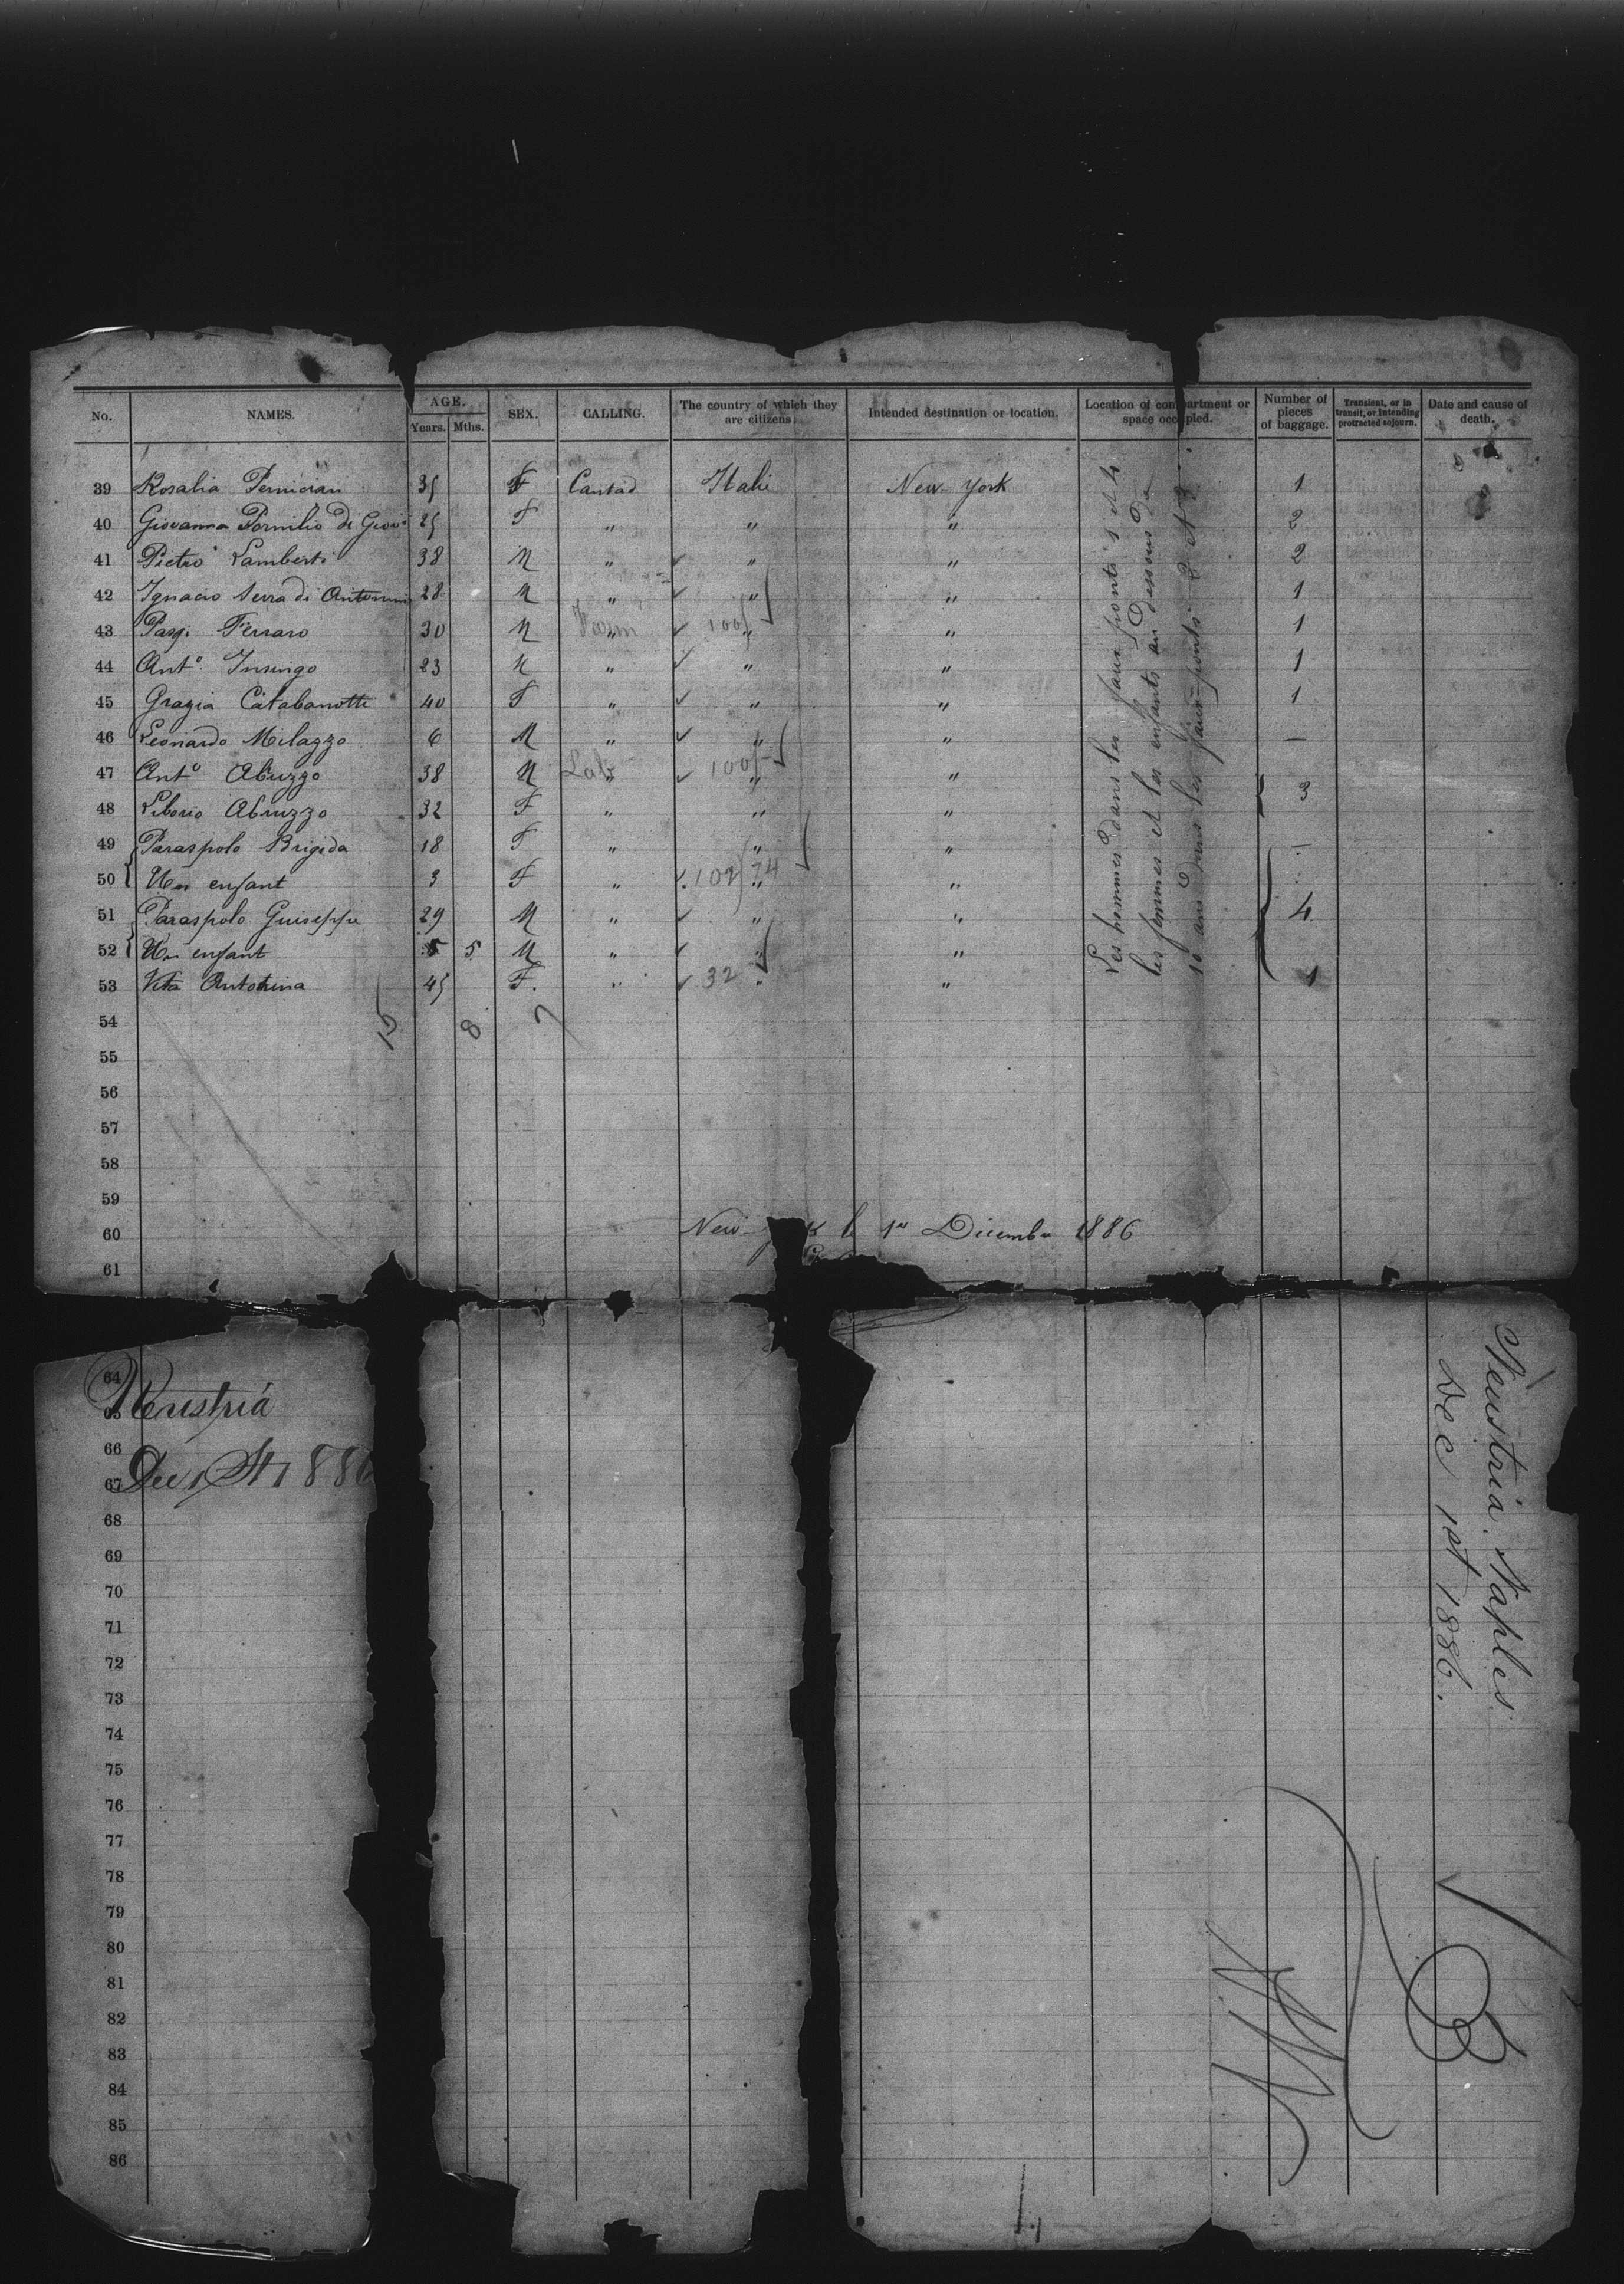 No. NAMES. AGE. Years. Mths. SEX. CALLING. The country of which they are citizens. Intended destination or location. Location of compartment or space occupied. Number of pieces of baggage. Transient, or in transit, or intending protracted sojourn. Date and cause of death.
39 Rosalia 35 F Italie New York 1
40 Giovanna di 25 F " " " 2
41 Pietro Lamberti 38 M " " " 2
42 Ignacio Serra di 28 M " " " 1
43 Ferraro 30 M " 100 " " 1
44 Anto. 23 M " " " 1
45 Grazia 40 F " " " 1
46 Leonardo Milazzo 6 M " " " —
47 Anto Abruzzo 38 M Lab " 100 " "
48 Liborio Abruzzo 32 F " " " 3
49 Paraspolo Brigida 18 F " " " —
50 Un enfant 3 F " 102 74 " "
51 Paraspolo Guiseppe 29 M " " " 4
52 Un enfant 5 M " " "
53 Vita Antonina 45 F. " 32 " " 1
Les hommes dans les faux ponts 1 et 4
les femmes et les enfants au dessous de
10 ans dans les faux-ponts 2 et 3.
15 8 7
54
55
56
57
58
59
60 New York le 1er Décembre 1886
61
64
65 Neustria
66
67 Dec 1st 1886
68
69
70
71
72
73
74
75
76
77
78
79
80
81
82
83
84
85
86
Neustria. Naples.
Dec 1st 1886.